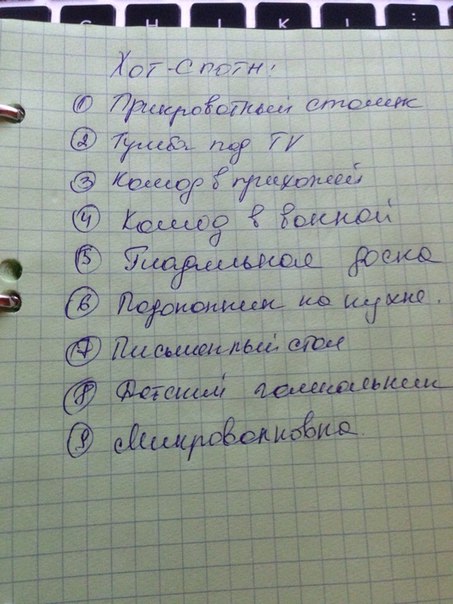 Хот-споты:
1 Прикроватный столик
2 Тумба под TV
3 Комод в прихожей
4 Комод в ванной
5 Гладильная доска
6 Подоконник на кухне.
7 Письменный стол
8 Детский
9 Микроволновка